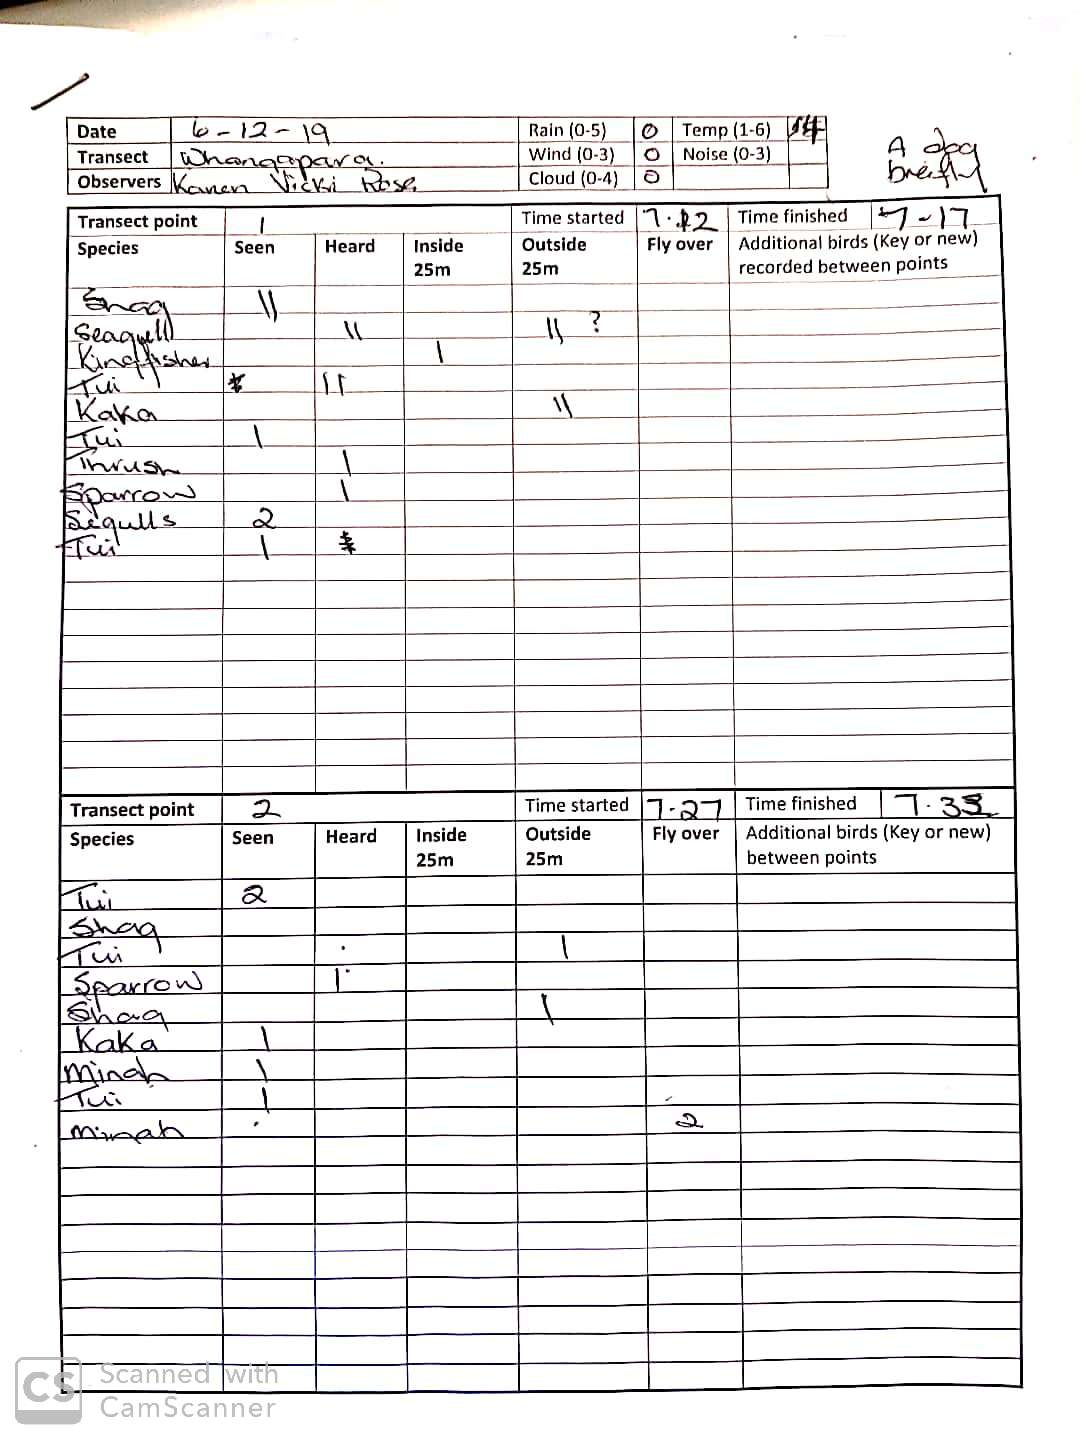 Date 6-12-19 Rain (0-5) 0 Temp (1-6) 4
Transect Whangapara. Wind (0-3) 0 Noise (0-3)
Observers Karen Vicki Rose Cloud (0-4) 0
A dog
breifly
Transect point 1 Time started 7.12 Time finished 7-17
Species Seen Heard Inside 25m Outside 25m Fly over Additional birds (Key or new) recorded between points
Shag \\
Seagull \\ \\ ?
Kingfisher \
Tui 11
Kaka \\
Tui \
Thrush \
Sparrow \
Segulls 2
Tui \
Transect point 2 Time started 7.27 Time finished
Species Seen Heard Inside 25m Outside 25m Fly over Additional birds (Key or new) between points
Tui 2
Shag
Tui 1
Sparrow 1
Shag \
Kaka \
Minah \
Tui 1
Minah 2
CS Scanned with
CamScanner